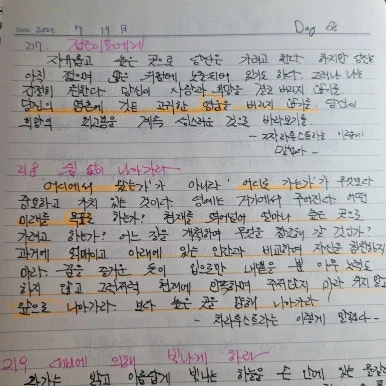 DATE. 2024 7 19 日 Day 68
217 젊은이들에게
자유롭고 높은 곳으로 당신은 가려고 한다. 하지만 당신은
아직 젊으며 많은 위험에 노출되어 있기도 하다. 그러나 나는
간절히 원한다. 당신이 사랑과 희망을 결코 버리지 않기를
당신의 영혼에 깃든 고귀한 영웅을 버리지 않기를. 당신이
희망의 최고봉을 계속 성스러운 것으로 바라보기를
- 차라투스트라는 이렇게
말했다 -
218 쉼 없이 나아가라
'어디에서 왔는가'가 아니라 '어디로 가는가'가 무엇보다
중요하고 가치 있는 것이다. 영예는 거기에서 주어진다. 어떤
미래를 목표로 하는가? 현재를 뛰어넘어 얼마나 높은 곳으로
가려고 하는가? 어느 길을 개척하여 무엇을 창조해 갈 것인가?
과거에 얽매이고 아래에 있는 인간과 비교하며 자신을 칭찬하지
마라. 꿈을 즐거운 듯이 입으로만 내뱉을 뿐 아무 것도
하지 않고 그럭저럭 현재에 만족하며 주저앉지 마라. 쉬지 않고
앞으로 나아가라. 보다 높은 곳을 향해 나아가라
- 차라투스트라는 이렇게 말했다 -
219 에 의해 빛나게 하라
맑고 아름답게 빛나는 하늘을